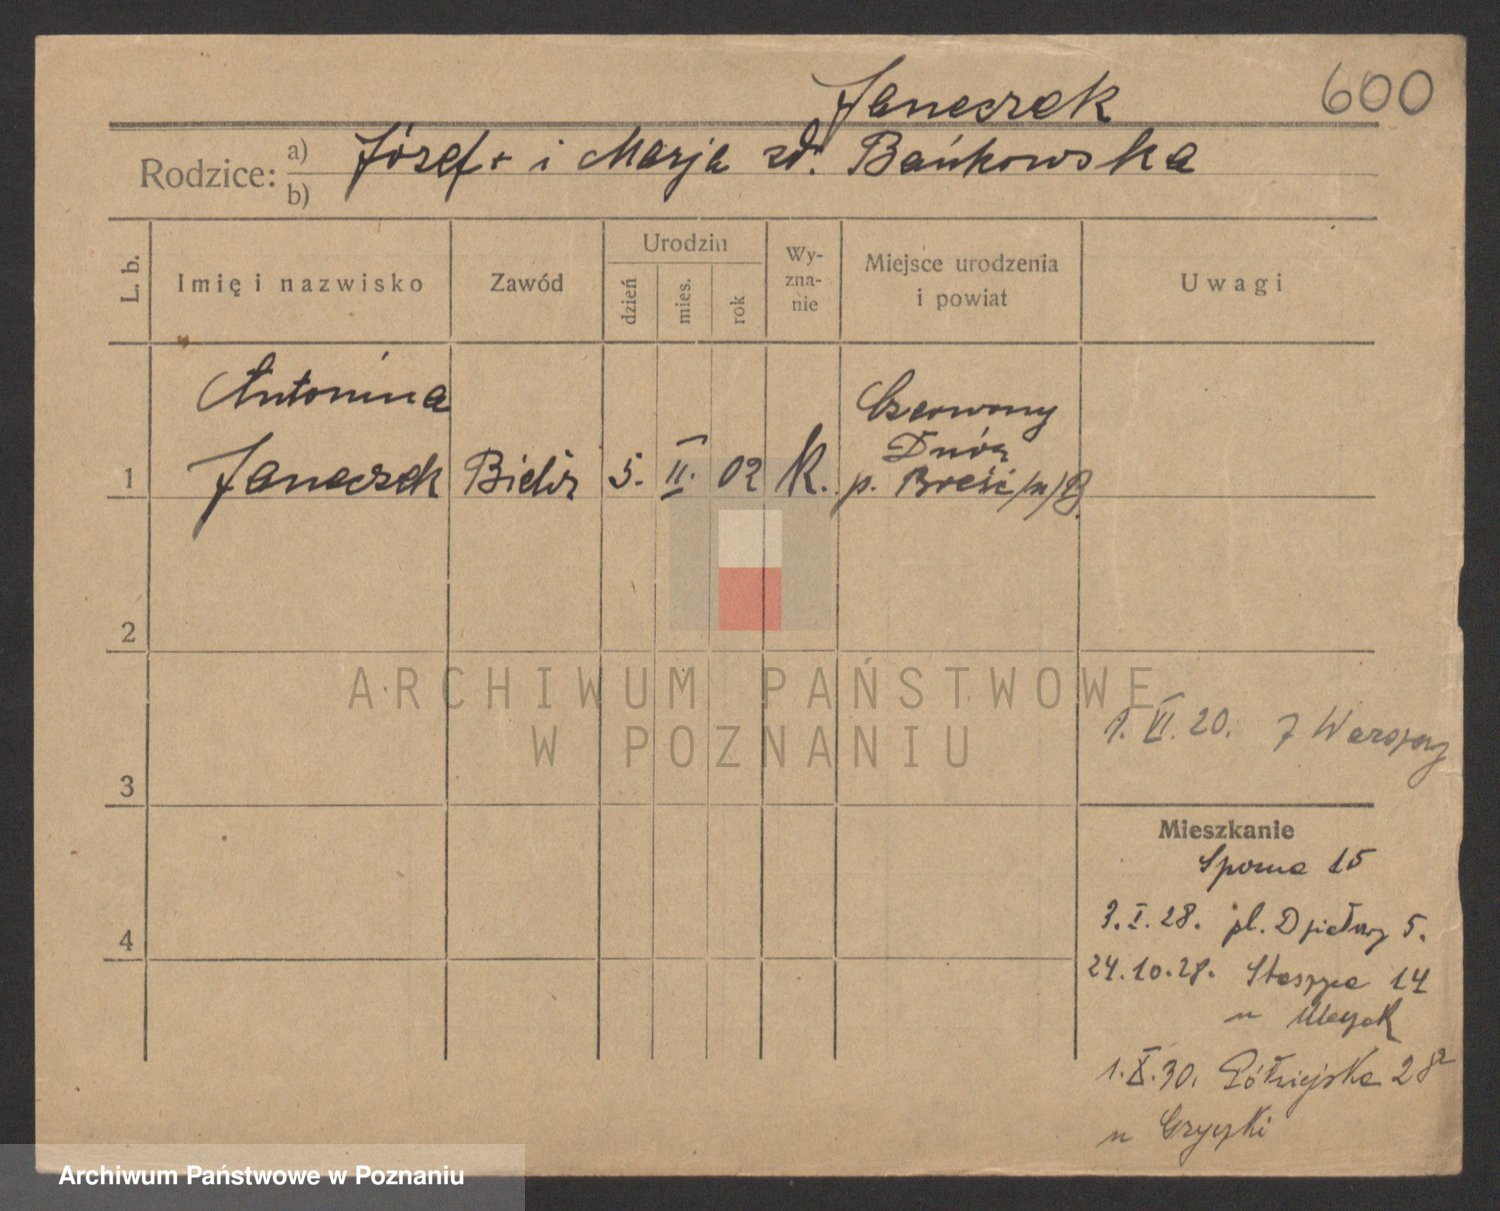 Janeczek 600
Rodzice: a) Józef + i Marja zd. Bańkowska
b)
L. b. Imię i nazwisko Zawód Urodzin dzień mies. rok Wy-zna-nie Miejsce urodzenia i powiat Uwagi
Antonina
Czerwony
Dwór
1 Janeczek 5. II. 02 K. p. Brześć /n/B.
2
ARCHIWUM PAŃSTWOWE
W POZNANIU
1. VI. 20. z Warszawy
3
Mieszkanie
Sporna 15
3. I. 28. pl. Działowy 5.
4
24.10.28. Staszyca 14
u
1. X. 30. Półwiejska 28
u
Archiwum Państwowe w Poznaniu